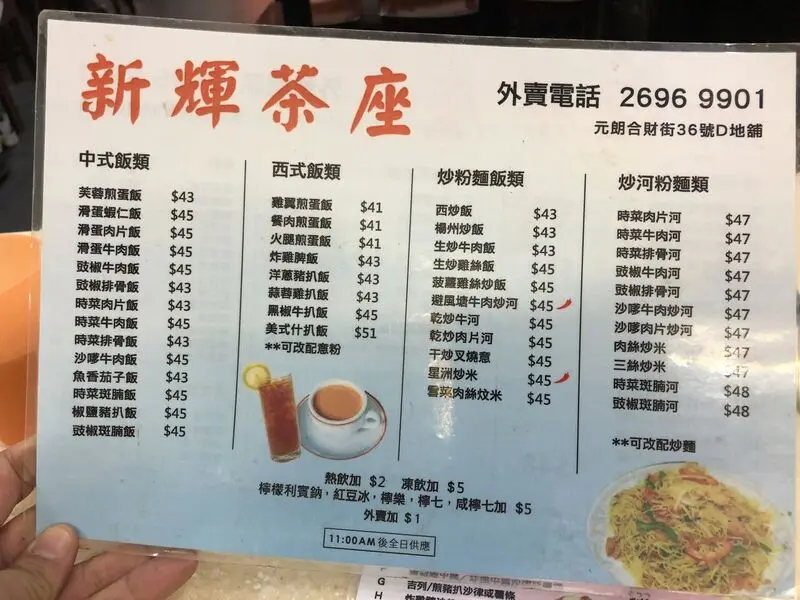 新輝茶座
外賣電話 2696 9901
元朗合財街36號D地舖
中式飯類
芙蓉煎蛋飯 $43
滑蛋蝦仁飯 $45
滑蛋肉片飯 $45
滑蛋牛肉飯 $45
豉椒牛肉飯 $45
豉椒排骨飯 $43
時菜肉片飯 $43
時菜牛肉飯 $45
時菜排骨飯 $43
沙嗲牛肉飯 $45
魚香茄子飯 $43
時菜斑腩飯 $45
椒鹽豬扒飯 $45
豉椒斑腩飯 $45
西式飯類
雞翼煎蛋飯 $41
餐肉煎蛋飯 $41
火腿煎蛋飯 $41
炸雞脾飯 $43
洋蔥豬扒飯 $43
蒜蓉雞扒飯 $43
黑椒牛扒飯 $45
美式什扒飯 $51
**可改配意粉
炒粉麵飯類
西炒飯 $43
楊州炒飯 $43
生炒牛肉飯 $43
生炒雞絲飯 $45
菠蘿雞絲炒飯 $45
避風塘牛肉炒河 $45
乾炒牛河 $45
乾炒肉片河 $45
干炒叉燒意 $45
星洲炒米 $45
雪菜肉絲炆米 $45
炒河粉麵類
時菜肉片河 $47
時菜牛肉河 $47
時菜排骨河 $47
豉椒牛肉河 $47
豉椒排骨河 $47
沙嗲牛肉炒河 $47
沙嗲肉片炒河 $47
肉絲炒米 $47
三絲炒米 $47
時菜斑腩河 $48
豉椒斑腩河 $48
**可改配炒麵
熱飲加 $2 凍飲加 $5
檸檬利賓鈉，紅豆冰，檸樂，檸七，咸檸七加 $5
外賣加 $1
11:00AM 後全日供應
G 吉列/煎豬扒沙律或薯條
H